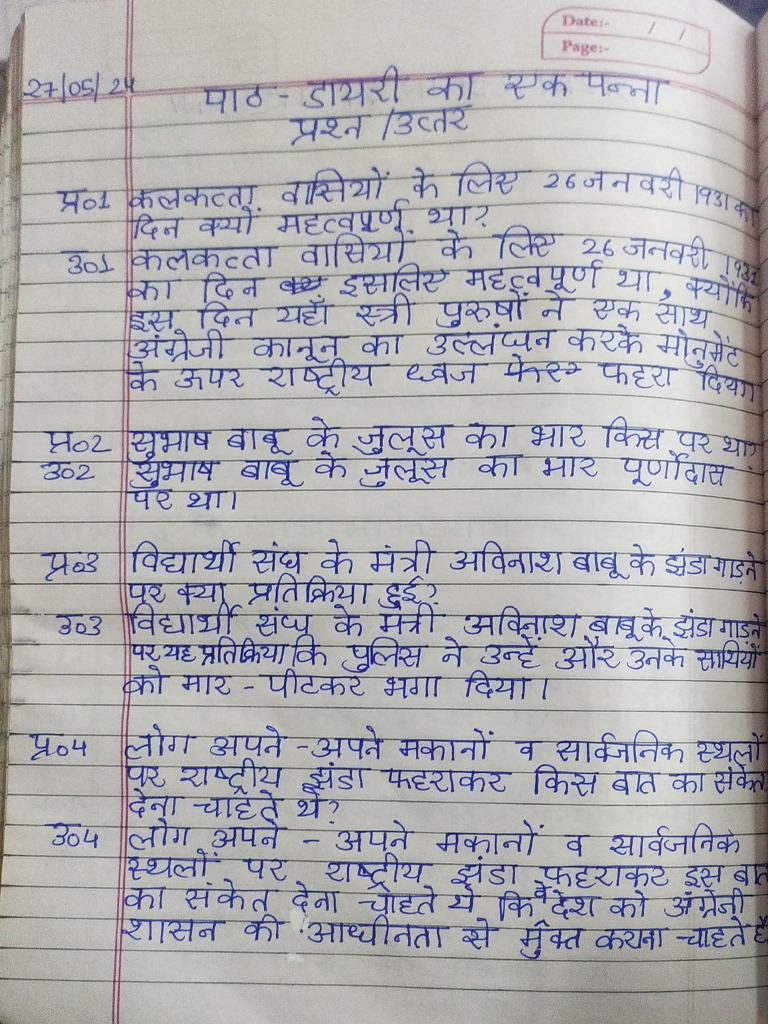 Date:- / /
Page:-
27/05/24
पाठ - डायरी का एक पन्ना
प्रश्न / उत्तर
प्र०1 कलकत्ता वासियों के लिए 26 जनवरी 1931 का
दिन क्यों महत्वपूर्ण था?
उ०1 कलकत्ता वासियों के लिए 26 जनवरी 1931
का दिन इसलिए महत्वपूर्ण था, क्योंकि
इस दिन यहाँ स्त्री पुरुषों ने एक साथ
अंग्रेजी कानून का उल्लंघन करके मोनुमेंट
के ऊपर राष्ट्रीय ध्वज फहरा दिया।
प्र०2 सुभाष बाबू के जुलूस का भार किस पर था?
उ०2 सुभाष बाबू के जुलूस का भार पूर्णोदास
पर था।
प्र०3 विद्यार्थी संघ के मंत्री अविनाश बाबू के झंडा गाड़ने
पर क्या प्रतिक्रिया हुई?
उ०3 विद्यार्थी संघ के मंत्री अविनाश बाबू के झंडा गाड़ने
पर यह प्रतिक्रिया कि पुलिस ने उन्हें और उनके साथियों
को मार - पीटकर भगा दिया।
प्र०4 लोग अपने - अपने मकानों व सार्वजनिक स्थलों
पर राष्ट्रीय झंडा फहराकर किस बात का संकेत
देना चाहते थे?
उ०4 लोग अपने - अपने मकानों व सार्वजनिक
स्थलों पर राष्ट्रीय झंडा फहराकर इस बात
का संकेत देना चाहते थे कि वे देश को अंग्रेजी
शासन की आधीनता से मुक्त कराना चाहते है